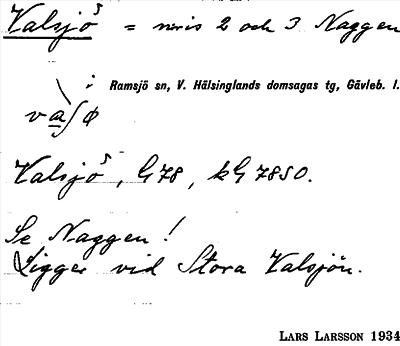 Valsjö = nris 2 och 3 Naggen
i Ramsjö sn, V. Hälsinglands domsagas tg, Gävleb. l.
vaʃø
Valsjö, G78, kG 7850.
Se Naggen!
Ligger vid Stora Valsjön.
LARS LARSSON 1934